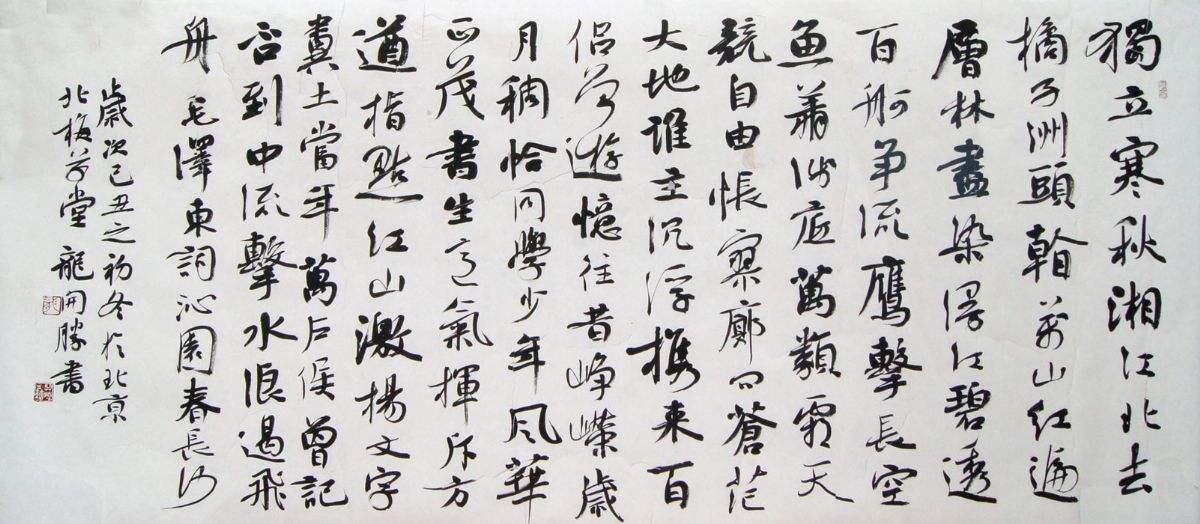 獨立寒秋湘江北去
橘子洲頭看萬山紅遍
層林盡染漫江碧透
百舸争流鷹擊長空
魚翔淺底萬類霜天
競自由悵寥廓問蒼茫
大地誰主沉浮携来百
侣曾遊憶往昔崢嶸歲
月稠恰同學少年風華
正茂書生意氣揮斥方
遒指點江山激揚文字
糞土當年萬户侯曾記
否到中流擊水浪遏飛
舟 毛澤東詞沁園春長沙
歲次己丑之初冬於北京
北梅草堂 龍開勝書